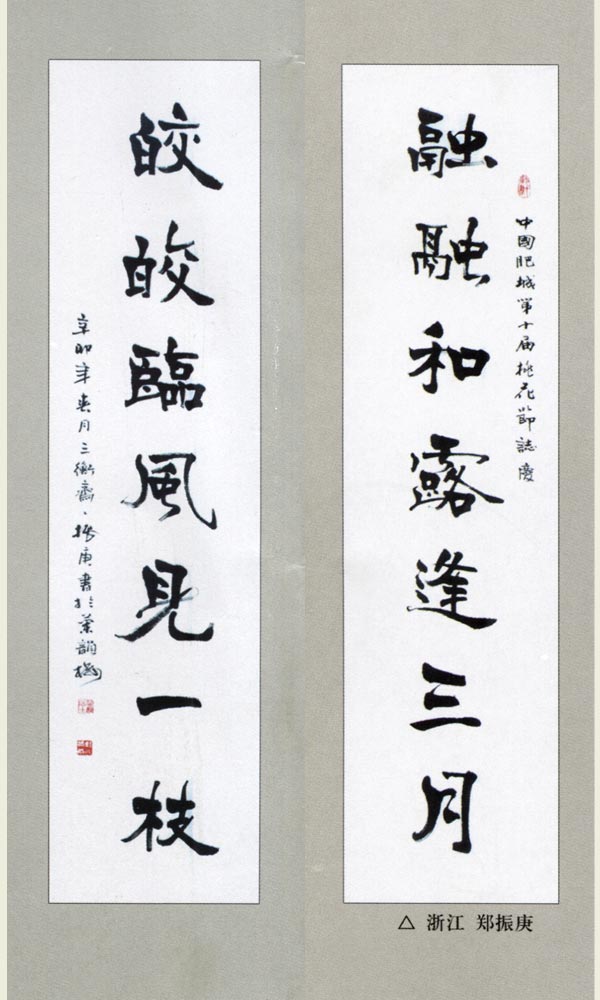 融融和露逢三月
中國肥城第十届桃花節誌慶
皎皎臨風見一枝
辛卯年春月三衡齋振庚書於韻樓
△ 浙江 郑振庚